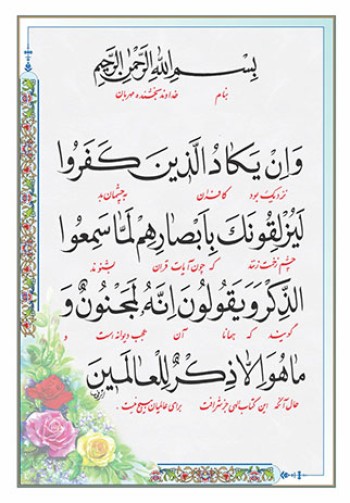 بِسْمِ اللهِ الرَّحْمٰنِ الرَّحِیمِ
بنام خداوند بخشنده مهربان
وَاِنْ یَكَادُ الَّذینَ كَفَرُوا
نزدیک بود کافران به چشمان بد
لَیُزْلِقُونَكَ بِاَبْصَارِهِمْ لَمَّا سَمِعُوا
چشم زخمت زنند که چون آیات قران بشنوند
الذِّكْرَ وَیَقُولُونَ اِنَّهُ لَمَجْنُونٌ وَ
گویند که همانا آن عجب دیوانه است و
مَا هُوَ اِلاّٰ ذِكْرٌ لِلْعَالَمینَ
حال آنکه این کتاب الهی جز شرافت برای عالمیان هیچ نیست